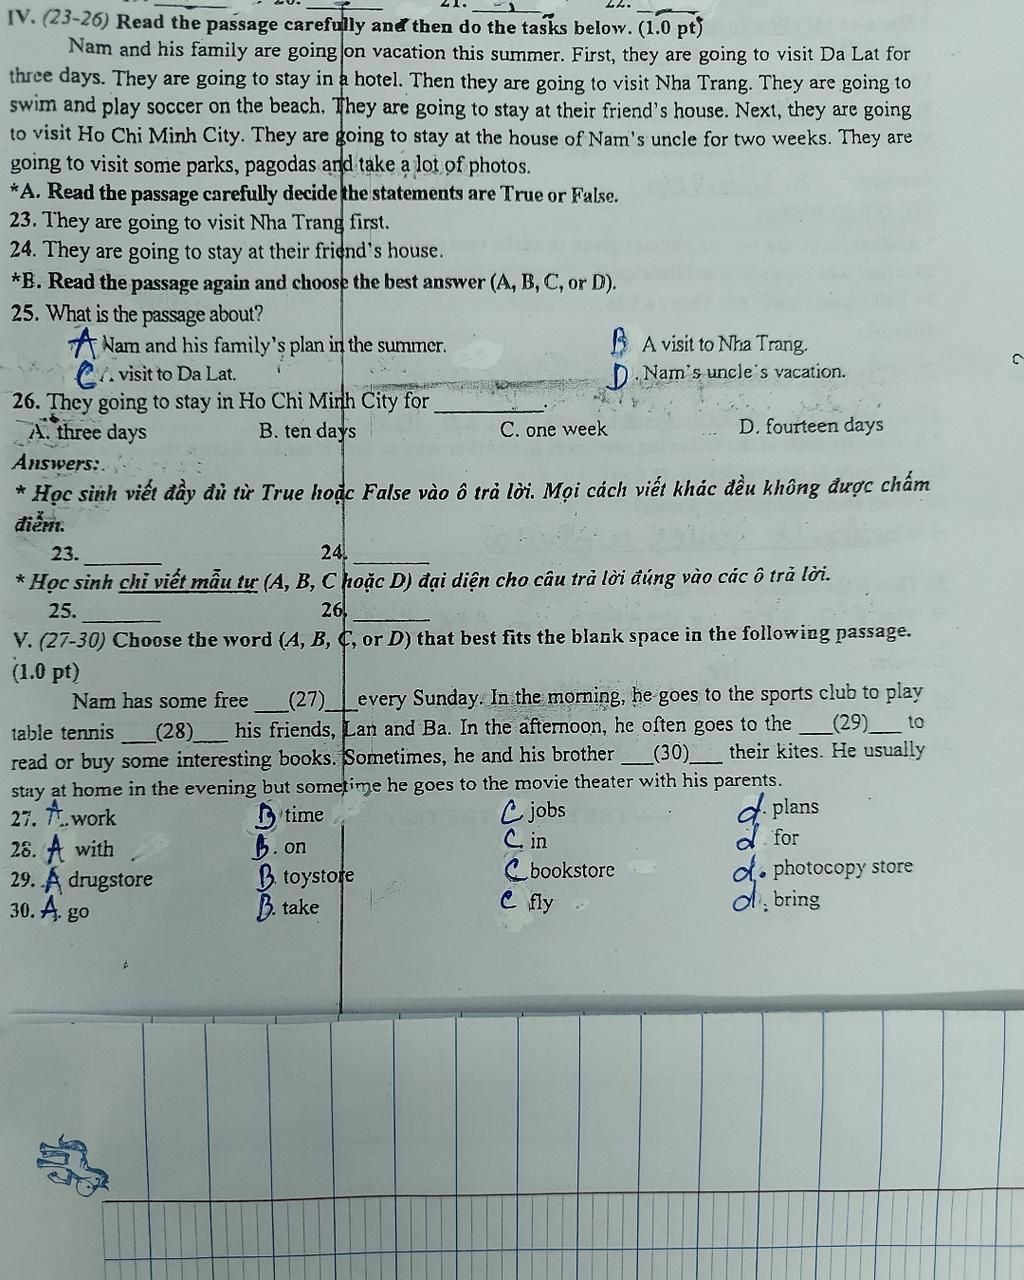 IV. (23-26) Read the passage carefully and then do the tasks below. (1.0 pt)
Nam and his family are going on vacation this summer. First, they are going to visit Da Lat for
three days. They are going to stay in a hotel. Then they are going to visit Nha Trang. They are going to
swim and play soccer on the beach. They are going to stay at their friend's house. Next, they are going
to visit Ho Chi Minh City. They are going to stay at the house of Nam's uncle for two weeks. They are
going to visit some parks, pagodas and take a lot of photos.
*A. Read the passage carefully decide the statements are True or False.
23. They are going to visit Nha Trang first.
24. They are going to stay at their friend's house.
*B. Read the passage again and choose the best answer (A, B, C, or D).
25. What is the passage about?
A Nam and his family's plan in the summer. B A visit to Nha Trang.
C A visit to Da Lat. D. Nam's uncle's vacation.
26. They going to stay in Ho Chi Minh City for __________.
A. three days B. ten days C. one week D. fourteen days
Answers:
* Học sinh viết đầy đủ từ True hoặc False vào ô trả lời. Mọi cách viết khác đều không được chấm
điểm.
23. ________ 24. ________
* Học sinh chỉ viết mẫu tự (A, B, C hoặc D) đại diện cho câu trả lời đúng vào các ô trả lời.
25. ________ 26. ________
V. (27-30) Choose the word (A, B, C, or D) that best fits the blank space in the following passage.
(1.0 pt)
Nam has some free ___(27)___ every Sunday. In the morning, he goes to the sports club to play
table tennis ___(28)___ his friends, Lan and Ba. In the afternoon, he often goes to the ___(29)___ to
read or buy some interesting books. Sometimes, he and his brother ___(30)___ their kites. He usually
stay at home in the evening but sometime he goes to the movie theater with his parents.
27. A. work B time C jobs d. plans
28. A with B. on C in d for
29. A drugstore B. toystore C bookstore d. photocopy store
30. A. go B. take C fly d. bring